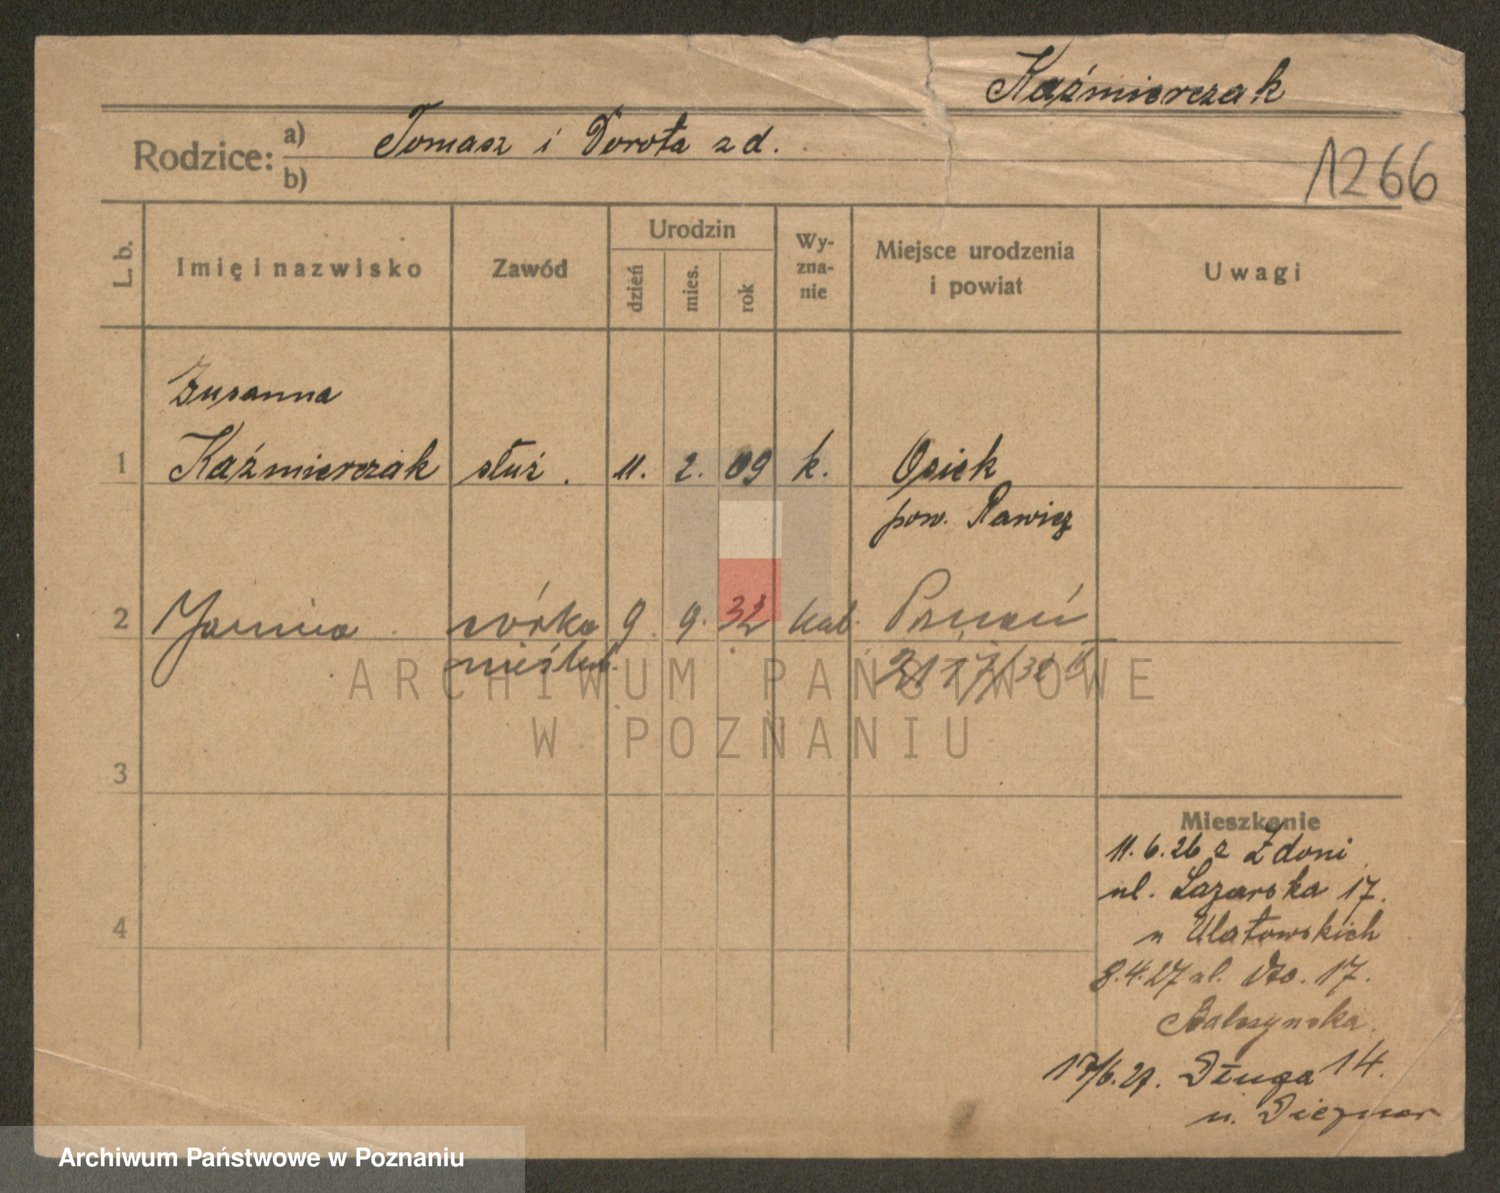 Kaźmierczak
Rodzice: a) Tomasz i Dorota z d.
b)
1266
L. b.
Imię i nazwisko
Zawód
Urodzin
dzień
mies.
rok
Wy-
zna-
nie
Miejsce urodzenia
i powiat
Uwagi
Zusanna
1 Kaźmierczak służ. 11. 2. 09 k. Osiek
pow. Rawicz
2 Janina córka 9. 9. 32 kat. Poznań
nieślub.
3
4
Mieszkanie
11.6.26 z Zdoni
ul. Łazarska 17.
u Ulatowskich
8.4.27 ul. 17.
17/6.27. Długa 14.
u.
ARCHIWUM PAŃSTWOWE
W POZNANIU
Archiwum Państwowe w Poznaniu